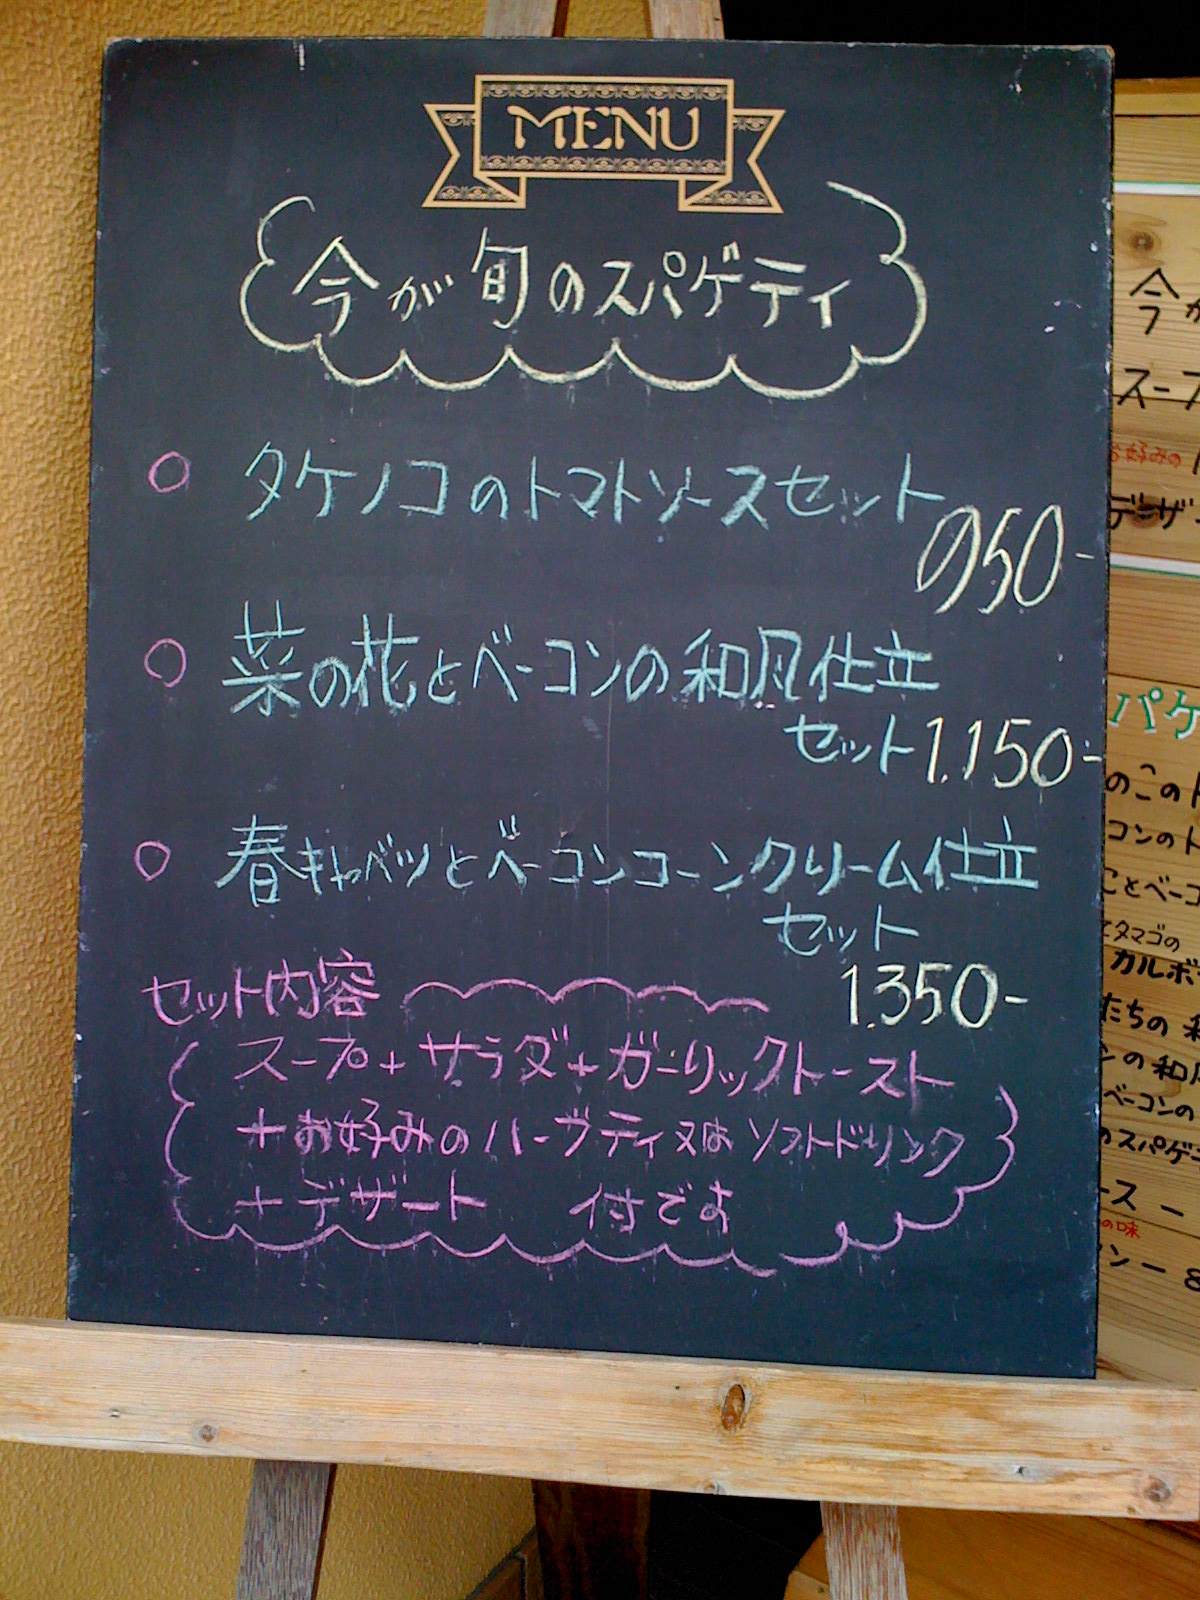 MENU
今が旬のスパゲティ
○ タケノコのトマトソースセット
950-
○ 菜の花とベーコンの和風仕立
セット 1.150-
○ 春キャベツとベーコンコーンクリーム仕立
セット
1.350-
セット内容
スープ+サラダ+ガーリックトースト
+お好みのハーブティ又は ソフトドリンク
+デザート 付です
今が
スープ
お好みの
デザ
パゲ
のこのト
コンのト
ことベーコ
タマゴの
カルボ
たちの 和
ンの和風
ベーコンの
のスパゲ
ース
の味